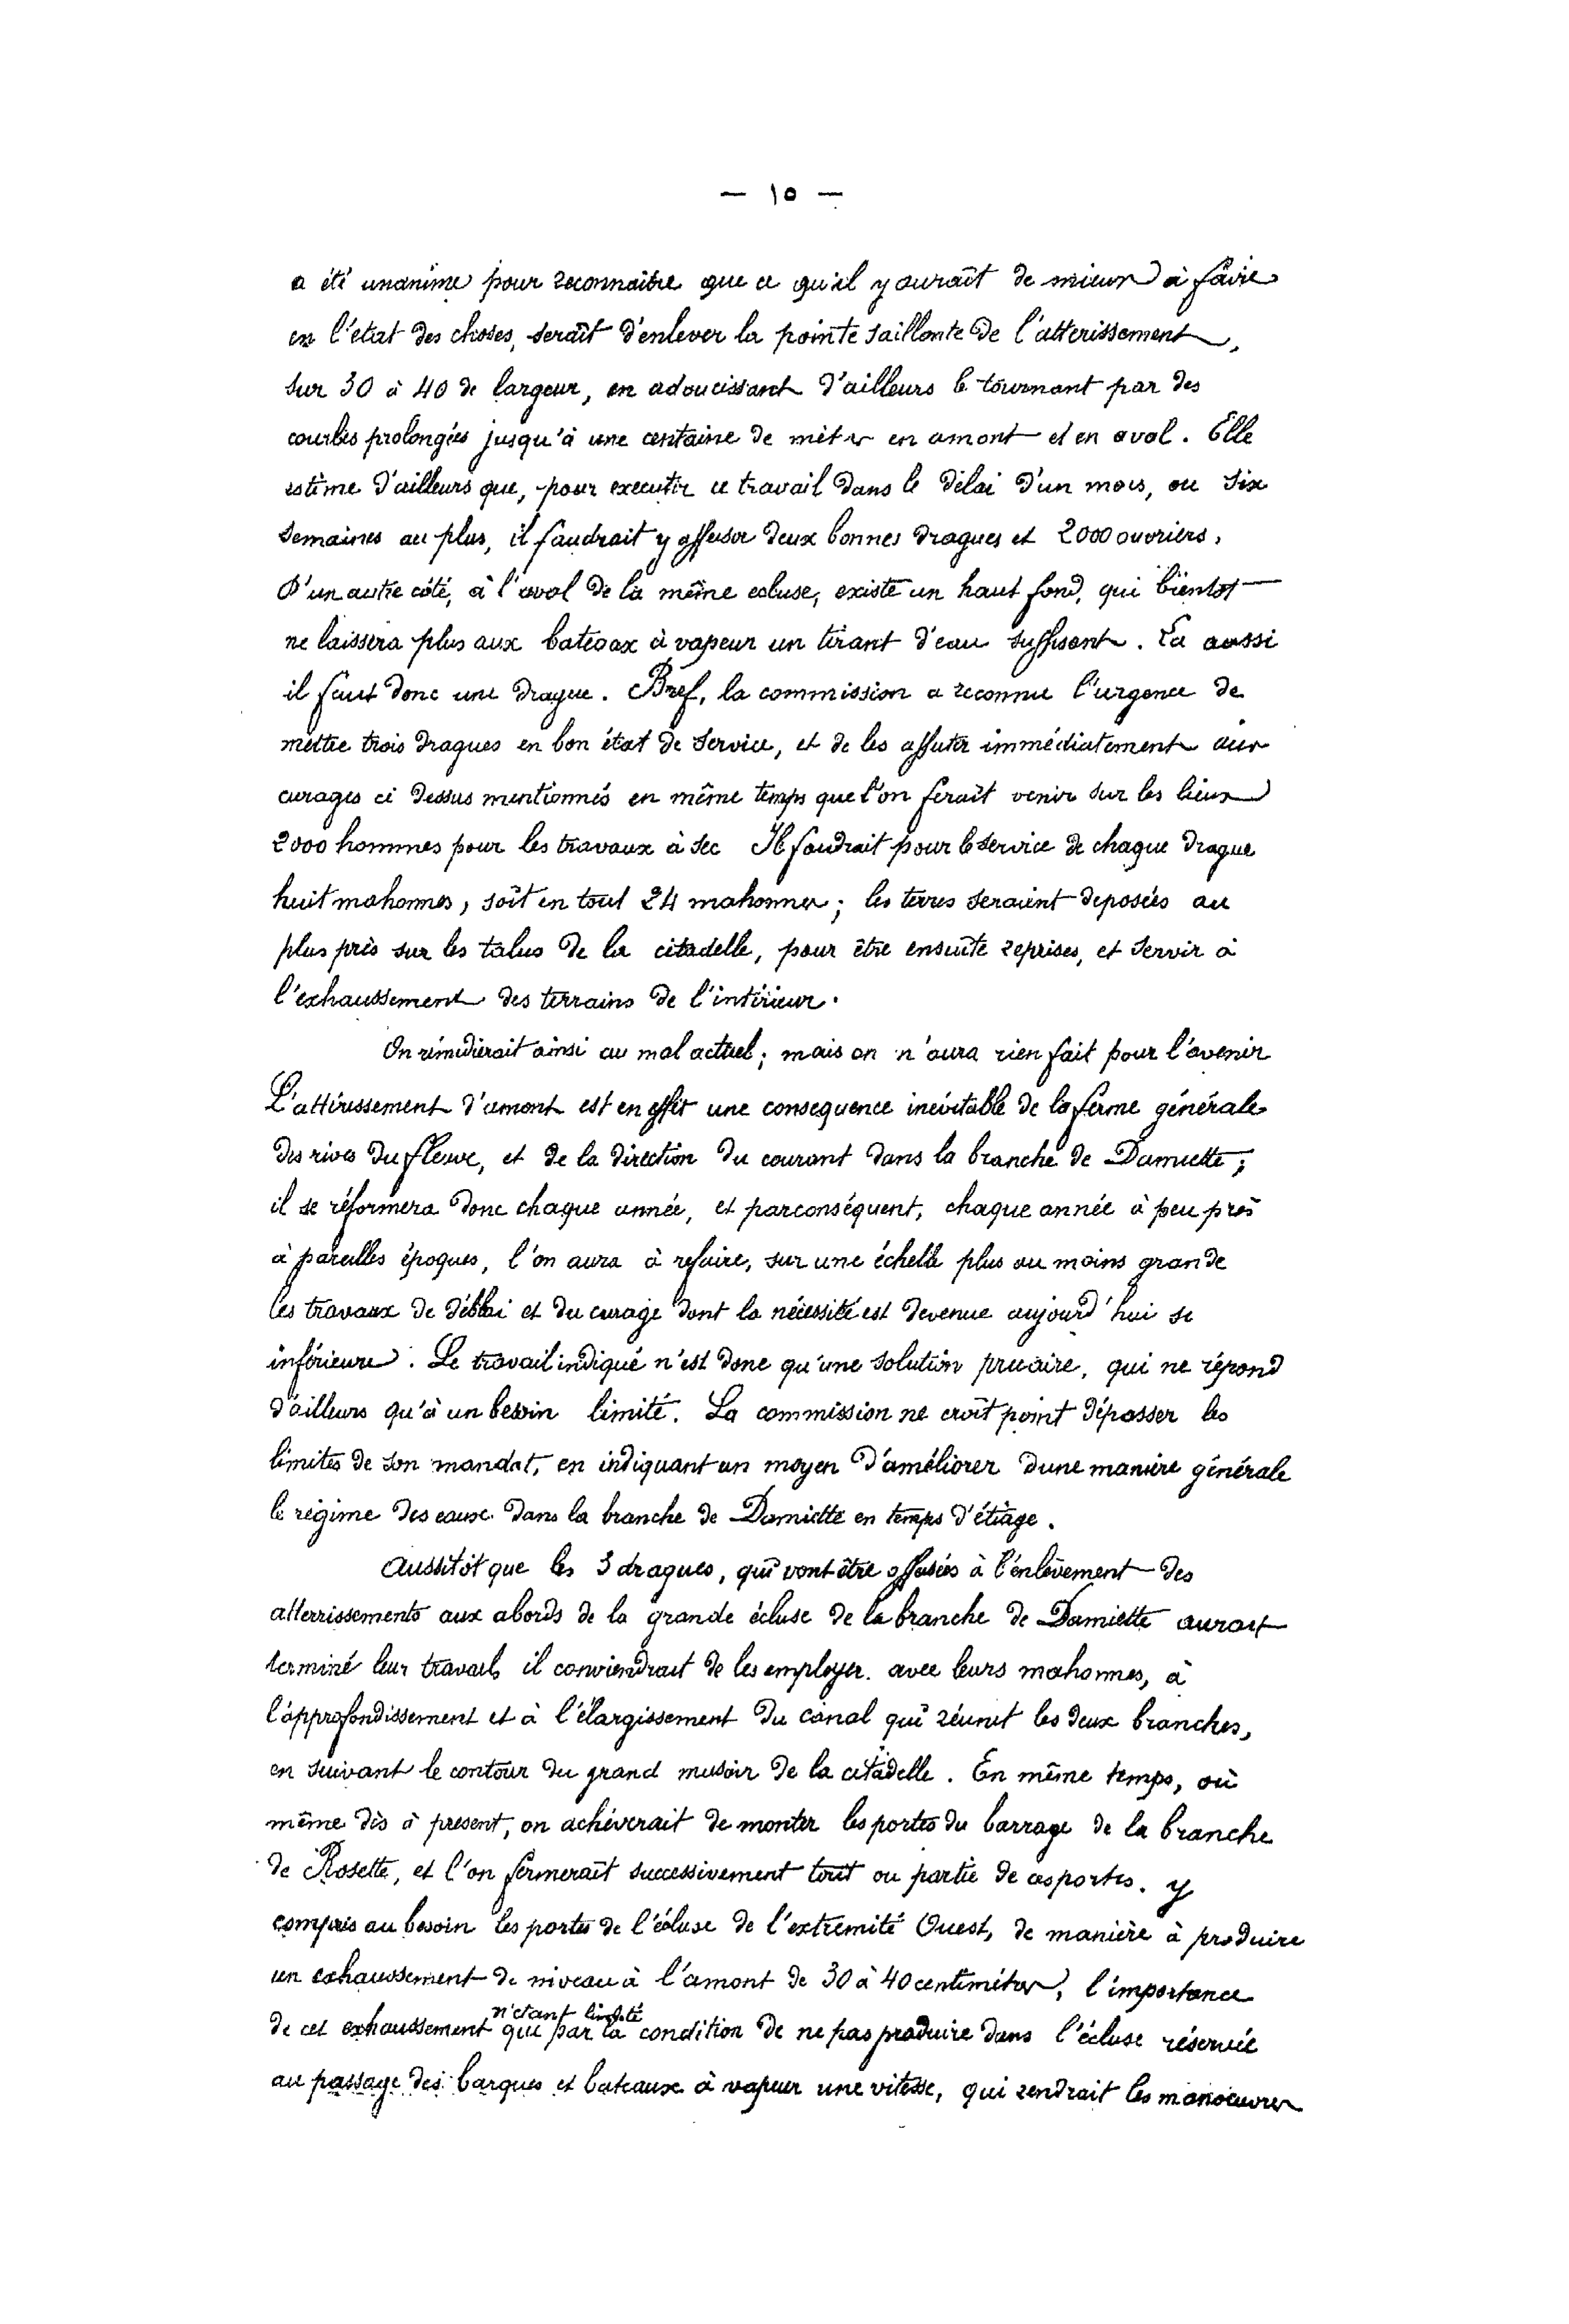 — ١٥ —
a été unanime pour reconnaitre que ce qu'il y aurait de mieux à faire
en l'etat des choses, serait d'enlever la pointe saillante de l'atterissement,
sur 30 à 40 de largeur, en adoucissant d'ailleurs le tournant par des
courbes prolongées jusqu'à une centaine de mètres en amont et en aval. Elle
estime d'ailleurs que, pour executer ce travail dans le délai d'un mois, ou six
semaines au plus, il faudrait y affecter deux bonnes dragues et 2000 ouvriers,
D'un autre côté, à l'aval de la même ecluse, existe un haut fond, qui bientot
ne laissera plus aux bateaux à vapeur un tirant d'eau suffisant. La aussi
il faut donc une drague. Bref, la commission a reconnu l'urgence de
mettre trois dragues en bon état de service, et de les affecter immédiatement aux
curages ci dessus mentionnés en même temps que l'on ferait venir sur les lieux
2000 hommes pour les travaux à sec Il faudrait pour le service de chaque drague
huit mahonnes, soit en tout 24 mahonnes; les terres seraient deposées au
plus près sur les talus de la citadelle, pour être ensuite reprises, et servir à
l'exhaussement des terrains de l'intérieur.
On rémédierait ainsi au mal actuel; mais on n'aura rien fait pour l'avenir
L'attérissement d'amont est en effet une consequence inévitable de la forme générale
des rives du fleuve, et de la direction du courant dans la branche de Damiette;
il se réformera donc chaque année, et parconséquent, chaque année à peu près
à pareilles époques, l'on aura à refaire, sur une échelle plus ou moins grande
les travaux de déblai et du curage dont la nécessité est devenue aujourd'hui se
inférieure. Le travail indiqué n'est donc qu'une solution precaire, qui ne répond
d'ailleurs qu'à un besoin limité. La commission ne croit point dépasser les
limites de son mandat, en indiquant un moyen d'améliorer dune manière générale
le régime des eaux dans la branche de Damiette en temps d'étiage.
Aussitôt que les 3 dragues, qui vont être affectées à l'enlèvement des
atterrissements aux abords de la grande écluse de la branche de Damiette auront
terminé leur travail, il conviendrait de les employer avec leurs mahonnes, à
l'approfondissement et à l'élargissement du canal qui réunit les deux branches,
en suivant le contour du grand musoir de la citadelle. En même temps, où
même dès à présent, on achéverait de monter les portes du barrage de la branche
de Rosette, et l'on fermerait successivement tout ou partie de ces portes. y
compris au besoin les portes de l'écluse de l'extremité Ouest, de manière à produire
un exhaussement de niveau à l'amont de 30 à 40 centimètres, l'importance
de cet exhaussement n'étant limité que par la condition de ne pas produire dans l'écluse réservée
au passage des barques et bateaux à vapeur une vitesse, qui rendrait les manoeuvres